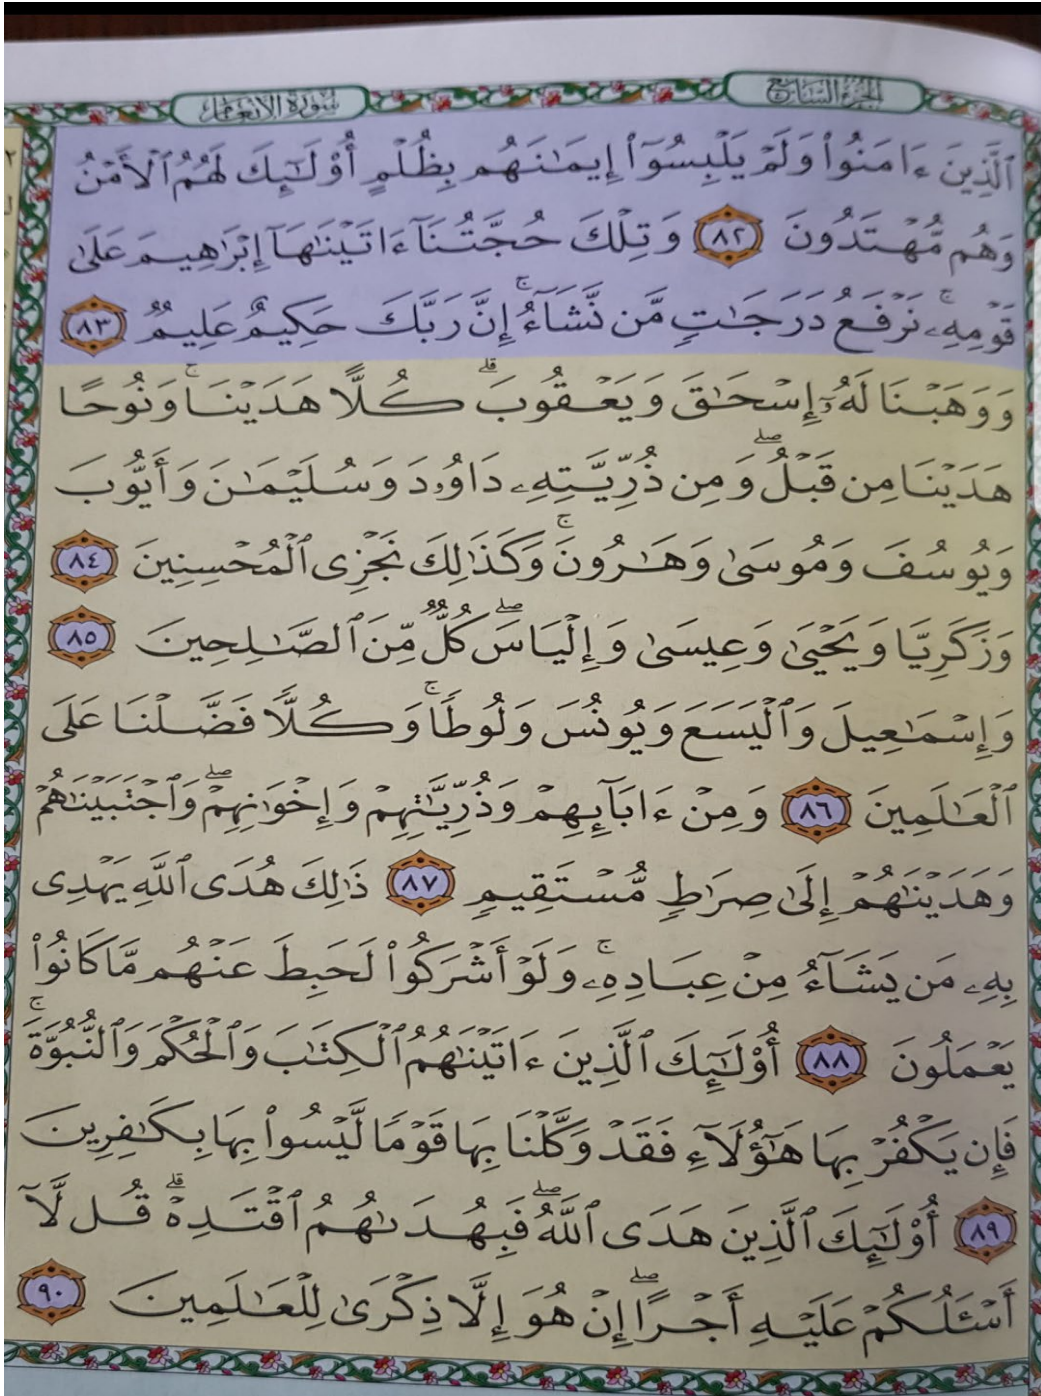 الجزء السابع
سورة الأنعام
ٱلَّذِينَ ءَامَنُوا۟ وَلَمْ يَلْبِسُوٓا۟ إِيمَـٰنَهُم بِظُلْمٍ أُو۟لَـٰٓئِكَ لَهُمُ ٱلْأَمْنُ
وَهُم مُّهْتَدُونَ ٨٢ وَتِلْكَ حُجَّتُنَآ ءَاتَيْنَـٰهَآ إِبْرَٰهِيمَ عَلَىٰ
قَوْمِهِۦ ۚ نَرْفَعُ دَرَجَـٰتٍ مَّن نَّشَآءُ ۗ إِنَّ رَبَّكَ حَكِيمٌ عَلِيمٌ ٨٣
وَوَهَبْنَا لَهُۥٓ إِسْحَـٰقَ وَيَعْقُوبَ ۚ كُلًّا هَدَيْنَا ۚ وَنُوحًا
هَدَيْنَا مِن قَبْلُ ۖ وَمِن ذُرِّيَّتِهِۦ دَاوُۥدَ وَسُلَيْمَـٰنَ وَأَيُّوبَ
وَيُوسُفَ وَمُوسَىٰ وَهَـٰرُونَ ۚ وَكَذَٰلِكَ نَجْزِى ٱلْمُحْسِنِينَ ٨٤
وَزَكَرِيَّا وَيَحْيَىٰ وَعِيسَىٰ وَإِلْيَاسَ ۖ كُلٌّ مِّنَ ٱلصَّـٰلِحِينَ ٨٥
وَإِسْمَـٰعِيلَ وَٱلْيَسَعَ وَيُونُسَ وَلُوطًا ۚ وَكُلًّا فَضَّلْنَا عَلَى
ٱلْعَـٰلَمِينَ ٨٦ وَمِنْ ءَابَآئِهِمْ وَذُرِّيَّـٰتِهِمْ وَإِخْوَٰنِهِمْ ۖ وَٱجْتَبَيْنَـٰهُمْ
وَهَدَيْنَـٰهُمْ إِلَىٰ صِرَٰطٍ مُّسْتَقِيمٍ ٨٧ ذَٰلِكَ هُدَى ٱللَّهِ يَهْدِى
بِهِۦ مَن يَشَآءُ مِنْ عِبَادِهِۦ ۚ وَلَوْ أَشْرَكُوا۟ لَحَبِطَ عَنْهُم مَّا كَانُوا۟
يَعْمَلُونَ ٨٨ أُو۟لَـٰٓئِكَ ٱلَّذِينَ ءَاتَيْنَـٰهُمُ ٱلْكِتَـٰبَ وَٱلْحُكْمَ وَٱلنُّبُوَّةَ ۚ
فَإِن يَكْفُرْ بِهَا هَـٰٓؤُلَآءِ فَقَدْ وَكَّلْنَا بِهَا قَوْمًا لَّيْسُوا۟ بِهَا بِكَـٰفِرِينَ
٨٩ أُو۟لَـٰٓئِكَ ٱلَّذِينَ هَدَى ٱللَّهُ ۖ فَبِهُدَىٰهُمُ ٱقْتَدِهْ ۗ قُل لَّآ
أَسْـَٔلُكُمْ عَلَيْهِ أَجْرًا ۖ إِنْ هُوَ إِلَّا ذِكْرَىٰ لِلْعَـٰلَمِينَ ٩٠